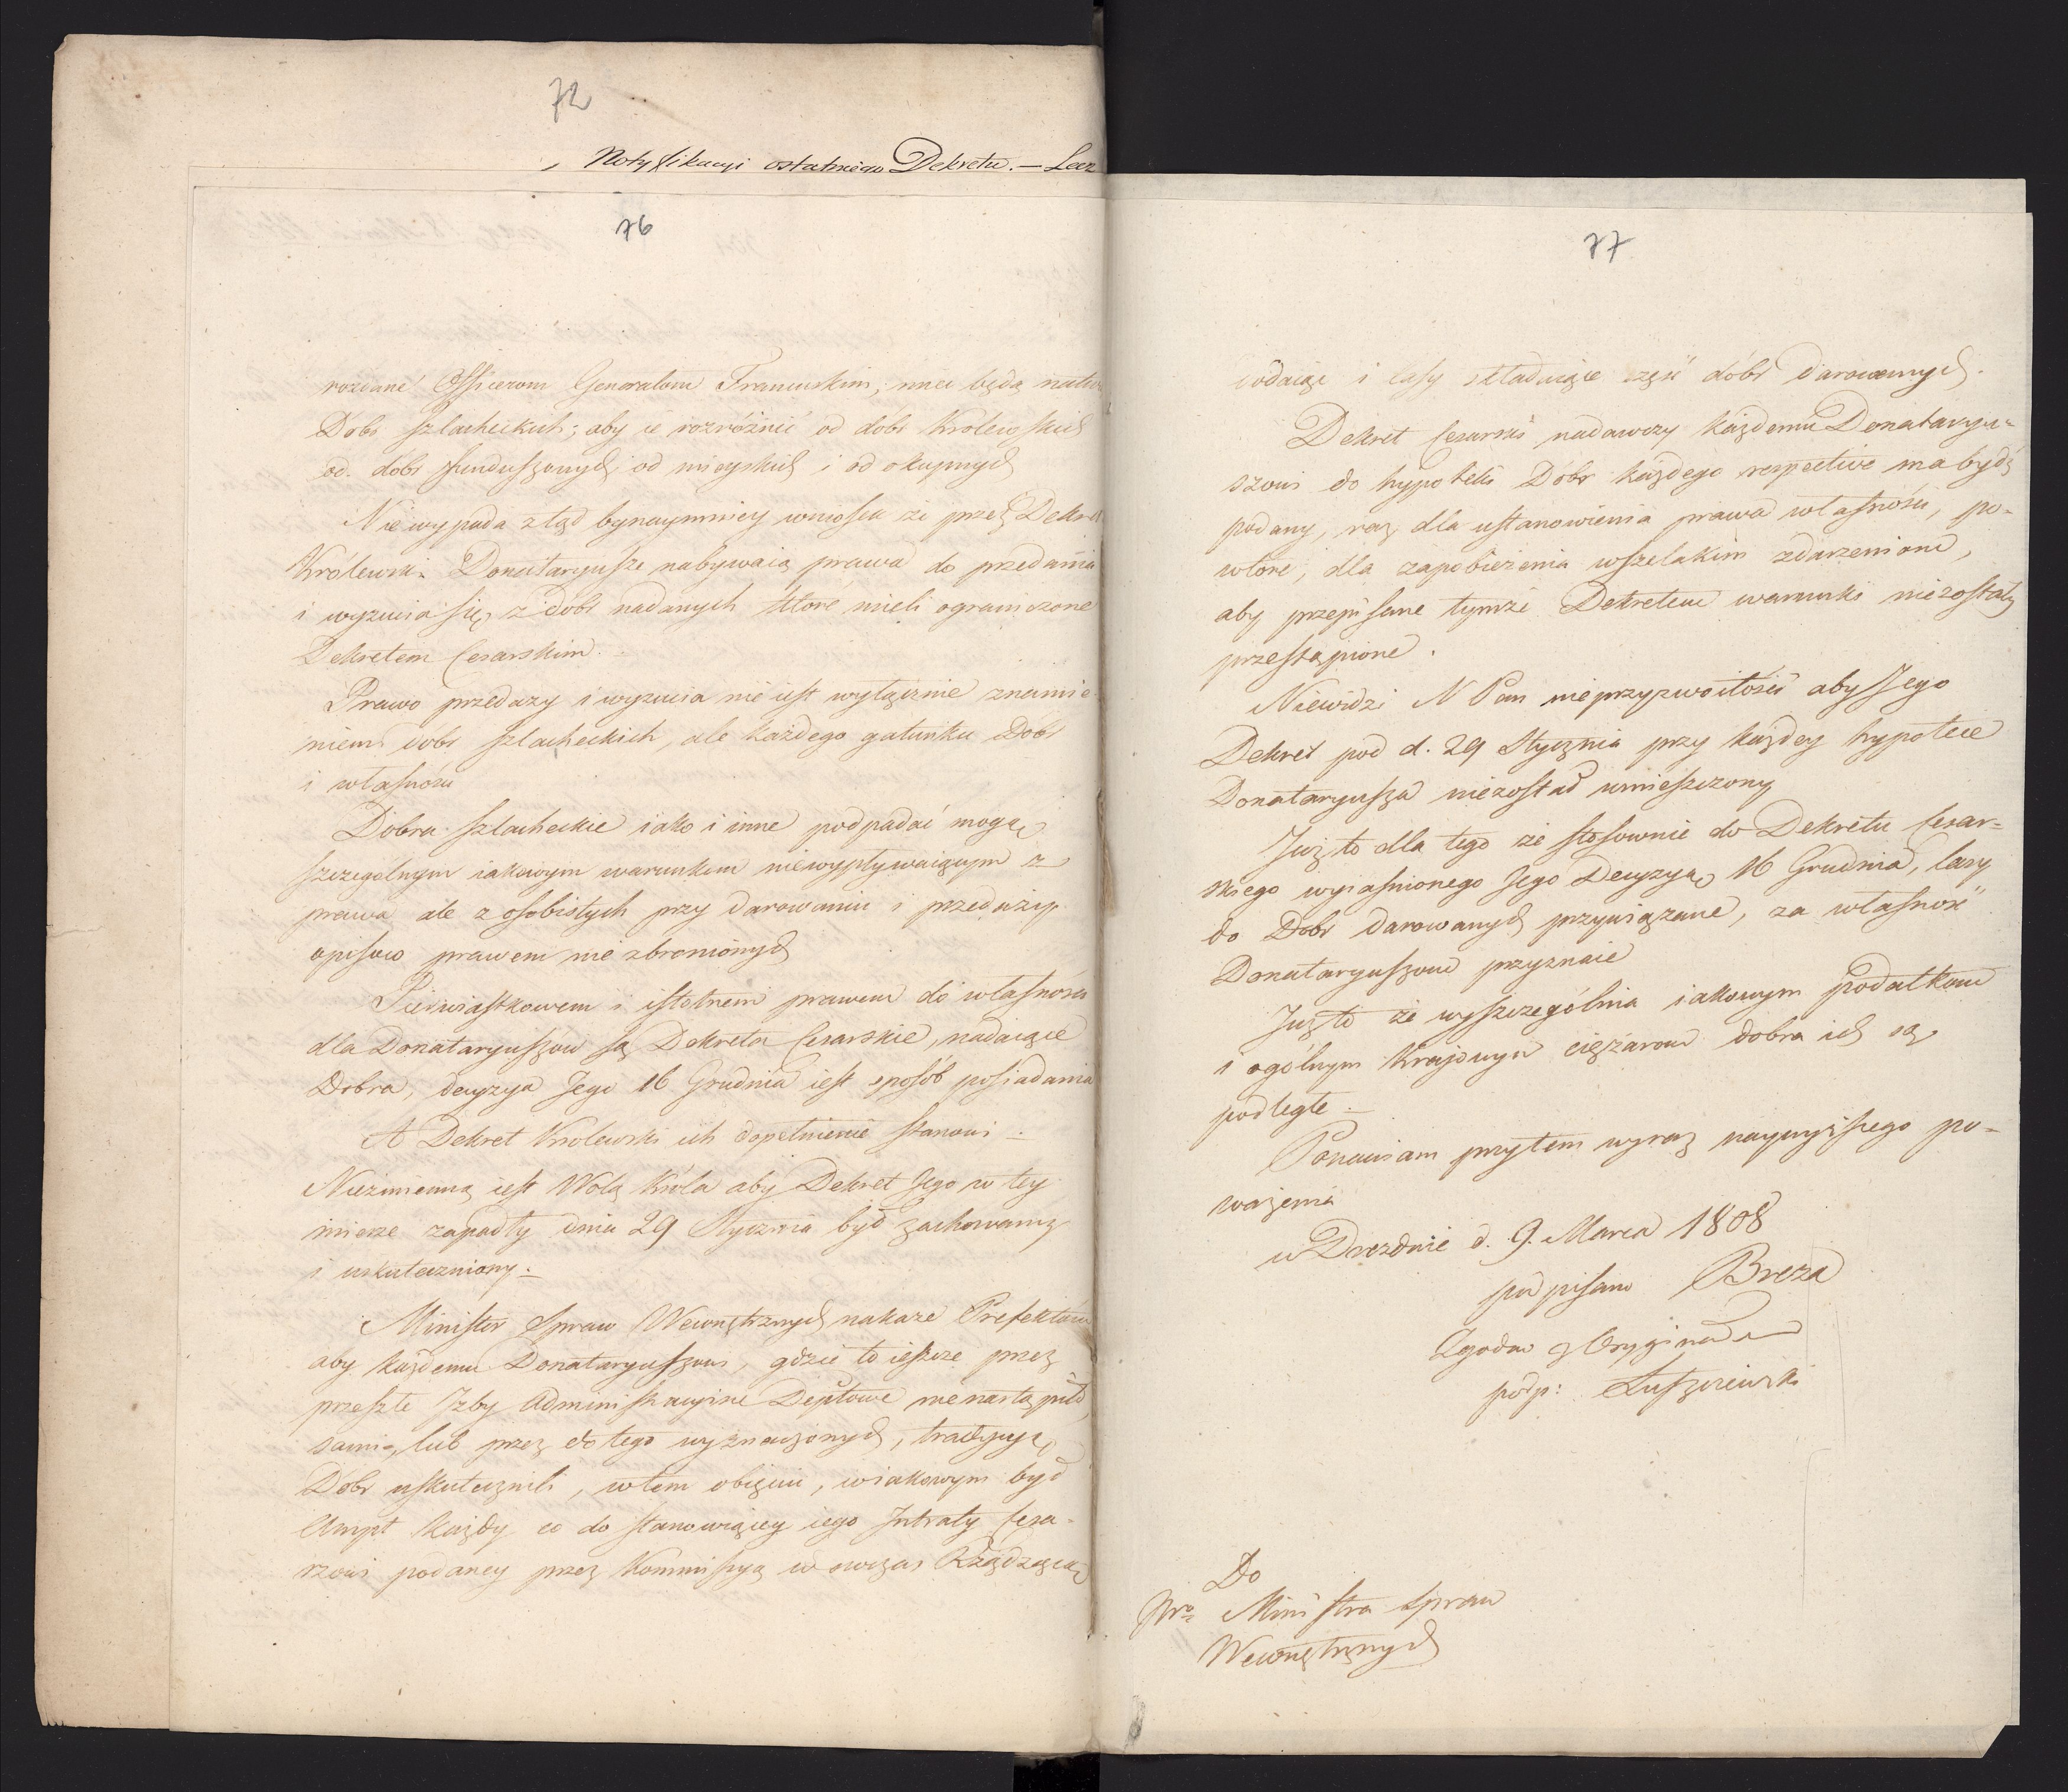 72
Notyfikacyi ostatniego Dekretu. — Lecz
76
rozdane Officerom Generałom Francuskim, mieć będą natu
Dóbr szlacheckich; aby ie rozróżnić od dóbr Królewskich
od dobr funduszowych, od mieyskich i od okupnych
Nie wypada ztąd bynaymniey wniosek że przez Dekret
Królewski Donataryusze nabywaią prawa do przedania
i wyzucia się z dóbr nadanych które mieli ograniczone
Dekretem Cesarskim.
Prawo przedaży i wyzucia nie iest wyłącznie znamie
niem dobr szlacheckich, ale każdego gatunku Dobr
i własności
Dobra szlacheckie iako i inne podpadać mogą
szczególnym iakowym warunkom niewypływaiącym z
prawa ale z osobistych przy darowaniu i przedaży
opisow prawem nie zbronionych
Pierwiastkowem i istotnem prawem do własności
dla Donataryuszów są Dekreta Cesarskie, nadaiące
Dobra, decyzya Jego 16 Grudnia iest sposób posiadania
A Dekret Królewski ich dopełnienie stanowi.
Niezmienną iest Wolą Króla aby Dekret Jego w tey
mierze zapadły dnia 29 Stycznia był zachowany
i uskuteczniony.
Minister Spraw Wewnętrznych nakaze Prefektom
aby każdemu Donataryuszowi, gdzie to ieszcze przez
przeszłe Izby Administracyine Deptowe nie nastąpiło,
sami, lub przez do tego wyznaczonych, tradycyą
Dobr uskutecznili, w tem obięciu, w iakowym był
Ampt każdy co do stanowiącey iego Intraty Cesa-
rzowi podaney przez Kommissyą w ówczas Rządzącą
77
wodaiąc i lasy składaiące część dóbr darowanych.
Dekret Cesarski nadawczy każdemu Donataryu-
szowi do hypoteki Dóbr każdego respective ma bydź
podany, raz dla ustanowienia prawa własności, po-
wtóre, dla zapobieżenia wszelakim zdarzeniom,
aby przepisane tymże Dekretem warunki niezostały
przestąpione.
Niewidzi N Pan nieprzyzwoitości aby Jego
Dekret pod d. 29 Stycznia przy każdey hypotece
Donataryusza niezostał umieszczony
Już to dla tego że stosownie do Dekretu Cesar-
skiego wyiaśnionego Jego Decyzyą 16 Grudnia, lasy
do Dobr darowanych przywiązane, za własność
Donataryuszow przyznaie
Już to że wyszczególnia iakowym podatkom
i ogólnym Krajowym ciężarom dobra ich są
podległe.
Ponawiam przytem wyraz naywyższego po-
ważenia
w Dreznie d. 9. Marca 1808
podpisano Breza
Zgodno z Oryginałem
podp: Łuszczewski
Do
Ministra Spraw
Wewnętrznych